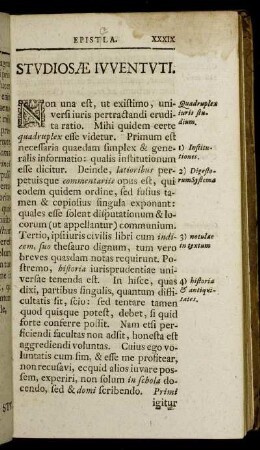 EPISTLA. XXXIX
STVDIOSÆ IVVENTVTI.
Non una est, ut existimo, uni-
versi iuris pertractandi erudi-
ta ratio. Mihi quidem certe
quadruplex esse videtur. Primum est
necessaria quaedam simplex & gene-
ralis informatio: qualis institutionum
esse dicitur. Deinde, latioribus per-
petuisque commentariis opus est, qui
eodem quidem ordine, sed fusius ta-
men & copiosius singula exponant:
quales esse solent disputationum & lo-
corum (ut appellantur) communium.
Tertio, ipsi iuris civilis libri cum indi-
cem, suo thesauro dignum, tum vero
breves quasdam notas requirunt. Po-
stremo, historia iurisprudentiae uni-
versae tenenda est. In hisce, quas
dixi, partibus singulis, quantum diffi-
cultatis sit, scio: sed tentare tamen
quod quisque potest, debet, si quid
forte conferre possit. Nam etsi per-
ficiendi facultas non adsit, honesta est
aggrediendi voluntas. Cuius ego vo-
luntatis cum sim, & esse me profitear,
non recusavi, ecquid alios iuvare pos-
sem, experiri, non solum in schola do-
cendo, sed & domi scribendo. Primi
igitur
Quadruplex
iuris stu-
dium.
1) Institu-
tiones.
2) Digesto-
rum Systema
3) notulae
in textum
4) historia
& antiqui-
tates.